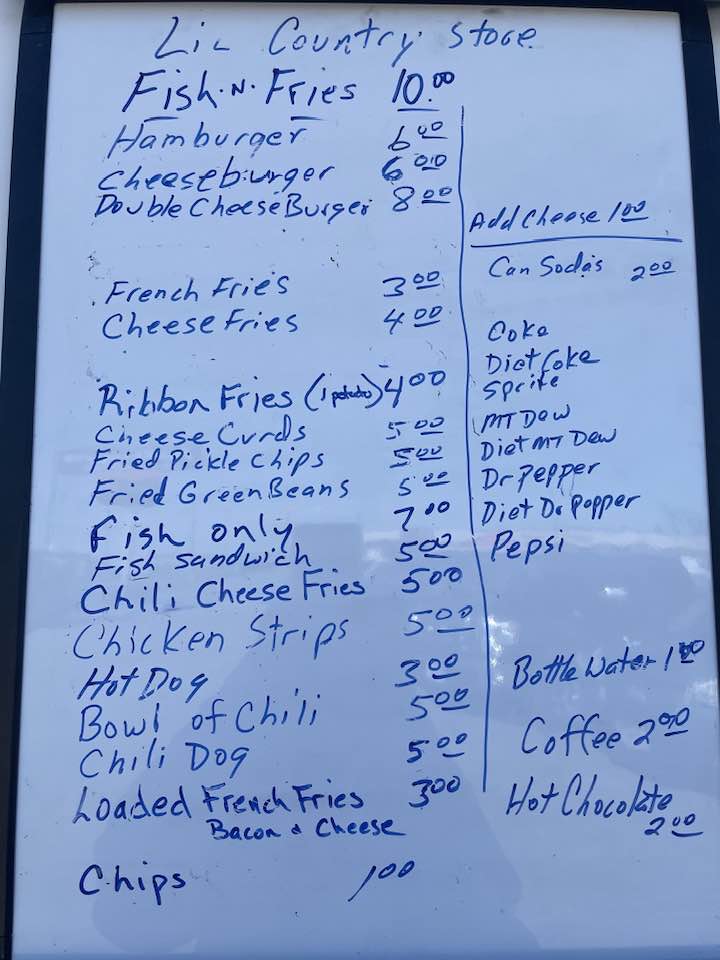 Lil Country Store
Fish·N·Fries 10.00
Hamburger 6.00
Cheeseburger 6.00
Double Cheese Burger 8.00
French Fries 3.00
Cheese Fries 4.00
Ribbon Fries (1 potato) 4.00
Cheese Curds 5.00
Fried Pickle Chips 5.00
Fried Green Beans 5.00
Fish only 7.00
Fish Sandwich 5.00
Chili Cheese Fries 5.00
Chicken Strips 5.00
Hot Dog 3.00
Bowl of Chili 5.00
Chili Dog 5.00
Loaded French Fries 3.00
Bacon & Cheese
Chips 1.00
Add Cheese 1.00
Can Sodas 2.00
Coke
Diet Coke
Sprite
MT Dew
Diet MT Dew
Dr Pepper
Diet Dr Popper
Pepsi
Bottle Water 1.00
Coffee 2.00
Hot Chocolate
2.00